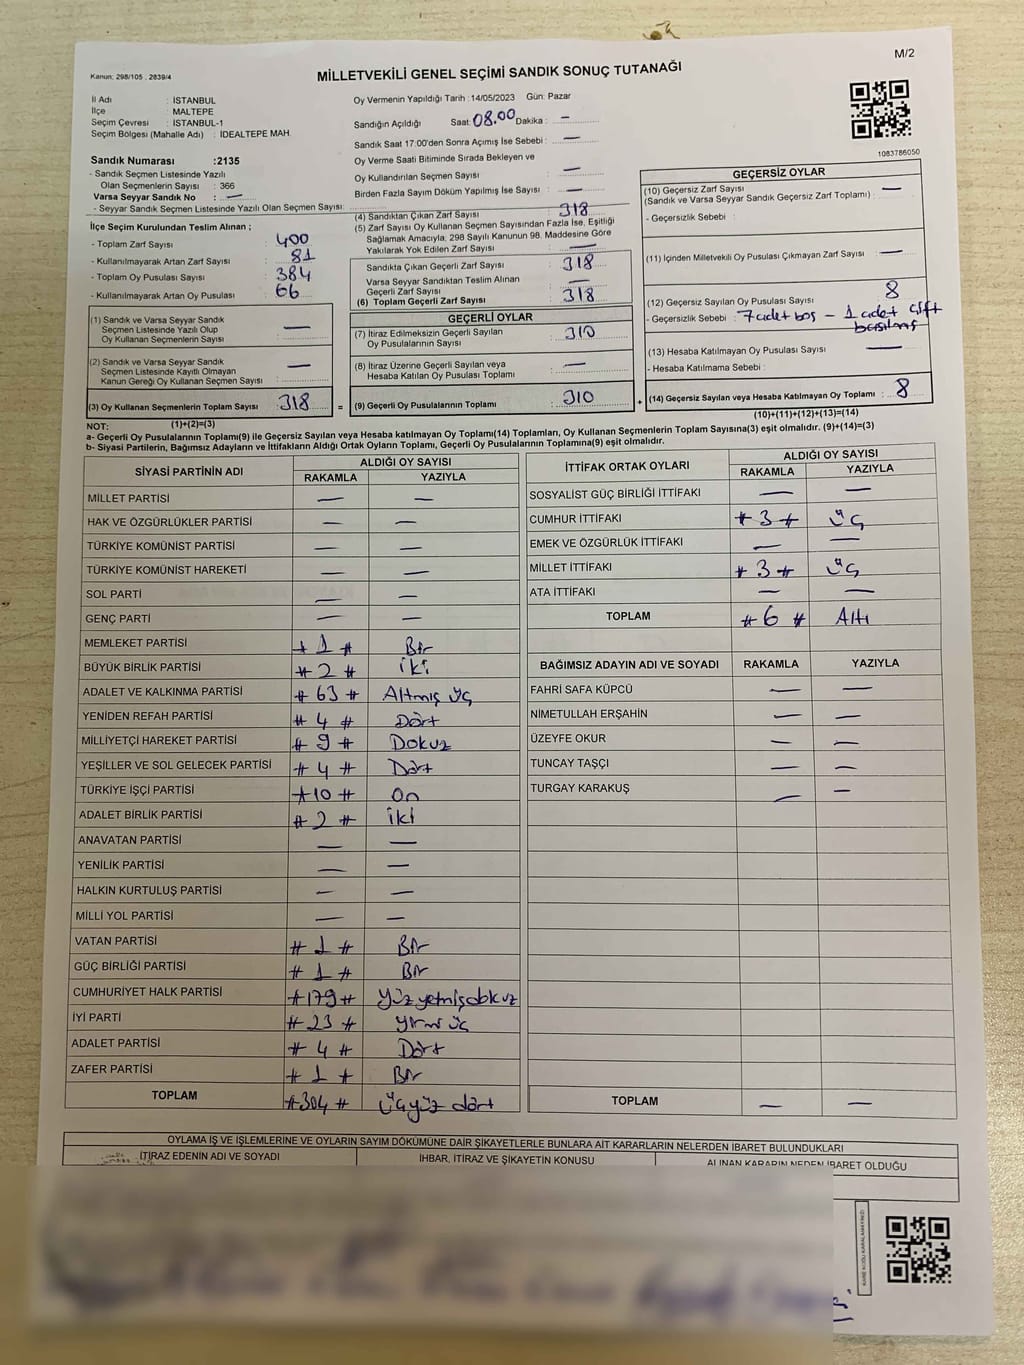 M/2
Kanun: 298/105 , 2839/4
MİLLETVEKİLİ GENEL SEÇİMİ SANDIK SONUÇ TUTANAĞI
İl Adı : İSTANBUL
İlçe : MALTEPE
Seçim Çevresi : İSTANBUL-1
Seçim Bölgesi (Mahalle Adı) : İDEALTEPE MAH.
Oy Vermenin Yapıldığı Tarih :14/05/2023 Gün: Pazar
Sandığın Açıldığı Saat: 08.00 Dakika : —
Sandık Saat 17:00'den Sonra Açımış İse Sebebi : —
Oy Verme Saati Bitiminde Sırada Bekleyen ve
Oy Kullandırılan Seçmen Sayısı —
Birden Fazla Sayım Döküm Yapılmış İse Sayısı : —
1083786050
Sandık Numarası :2135
- Sandık Seçmen Listesinde Yazılı
Olan Seçmenlerin Sayısı : 366
Varsa Seyyar Sandık No : —
- Seyyar Sandık Seçmen Listesinde Yazılı Olan Seçmen Sayısı:
İlçe Seçim Kurulundan Teslim Alınan ;
- Toplam Zarf Sayısı : 400
- Kullanılmayarak Artan Zarf Sayısı : 81
- Toplam Oy Pusulası Sayısı : 384
- Kullanılmayarak Artan Oy Pusulası : 66
(1) Sandık ve Varsa Seyyar Sandık
Seçmen Listesinde Yazılı Olup
Oy Kullanan Seçmenlerin Sayısı : —
(2) Sandık ve Varsa Seyyar Sandık
Seçmen Listesinde Kayıtlı Olmayan
Kanun Gereği Oy Kullanan Seçmen Sayısı : —
(3) Oy Kullanan Seçmenlerin Toplam Sayısı : 318 =
(1)+(2)=(3)
(4) Sandıktan Çıkan Zarf Sayısı : 318
(5) Zarf Sayısı Oy Kullanan Seçmen Sayısından Fazla İse, Eşitliği
Sağlamak Amacıyla, 298 Sayılı Kanunun 98. Maddesine Göre
Yakılarak Yok Edilen Zarf Sayısı : —
Sandıkta Çıkan Geçerli Zarf Sayısı : 318
Varsa Seyyar Sandıktan Teslim Alınan
Geçerli Zarf Sayısı : —
(6) Toplam Geçerli Zarf Sayısı : 318
GEÇERLİ OYLAR
(7) İtiraz Edilmeksizin Geçerli Sayılan
Oy Pusulalarının Sayısı : 310
(8) İtiraz Üzerine Geçerli Sayılan veya
Hesaba Katılan Oy Pusulası Toplamı : —
(9) Geçerli Oy Pusulalarının Toplamı : 310 +
GEÇERSİZ OYLAR
(10) Geçersiz Zarf Sayısı
(Sandık ve Varsa Seyyar Sandık Geçersiz Zarf Toplamı) : —
- Geçersizlik Sebebi :
(11) İçinden Milletvekili Oy Pusulası Çıkmayan Zarf Sayısı : —
(12) Geçersiz Sayılan Oy Pusulası Sayısı : 8
- Geçersizlik Sebebi : 7 adet boş - 1 adet çift
basılmış
(13) Hesaba Katılmayan Oy Pusulası Sayısı : —
- Hesaba Katılmama Sebebi :
(14) Geçersiz Sayılan veya Hesaba Katılmayan Oy Toplamı : 8
(10)+(11)+(12)+(13)=(14)
NOT:
a- Geçerli Oy Pusulalarının Toplamı(9) ile Geçersiz Sayılan veya Hesaba katılmayan Oy Toplamı(14) Toplamları, Oy Kullanan Seçmenlerin Toplam Sayısına(3) eşit olmalıdır. (9)+(14)=(3)
b- Siyasi Partilerin, Bağımsız Adayların ve İttifakların Aldığı Ortak Oyların Toplamı, Geçerli Oy Pusulalarının Toplamına(9) eşit olmalıdır.
SİYASİ PARTİNİN ADI ALDIĞI OY SAYISI
RAKAMLA YAZIYLA
MİLLET PARTİSİ — —
HAK VE ÖZGÜRLÜKLER PARTİSİ — —
TÜRKİYE KOMÜNİST PARTİSİ — —
TÜRKİYE KOMÜNİST HAREKETİ — —
SOL PARTİ — —
GENÇ PARTİ — —
MEMLEKET PARTİSİ # 1 # Bir
BÜYÜK BİRLİK PARTİSİ # 2 # iki
ADALET VE KALKINMA PARTİSİ # 63 # Altmış üç
YENİDEN REFAH PARTİSİ # 4 # Dört
MİLLİYETÇİ HAREKET PARTİSİ # 9 # Dokuz
YEŞİLLER VE SOL GELECEK PARTİSİ # 4 # Dört
TÜRKİYE İŞÇİ PARTİSİ #10 # On
ADALET BİRLİK PARTİSİ # 2 # iki
ANAVATAN PARTİSİ — —
YENİLİK PARTİSİ — —
HALKIN KURTULUŞ PARTİSİ — —
MİLLİ YOL PARTİSİ — —
VATAN PARTİSİ # 1 # Bir
GÜÇ BİRLİĞİ PARTİSİ # 1 # Bir
CUMHURİYET HALK PARTİSİ #179# Yüz yetmiş dokuz
İYİ PARTİ # 23 # Yirmi üç
ADALET PARTİSİ # 4 # Dört
ZAFER PARTİSİ # 1 # Bir
TOPLAM #304 # Üçyüz dört
İTTİFAK ORTAK OYLARI ALDIĞI OY SAYISI
RAKAMLA YAZIYLA
SOSYALİST GÜÇ BİRLİĞİ İTTİFAKI — —
CUMHUR İTTİFAKI # 3 # Üç
EMEK VE ÖZGÜRLÜK İTTİFAKI — —
MİLLET İTTİFAKI # 3 # Üç
ATA İTTİFAKI — —
TOPLAM # 6 # Altı
BAĞIMSIZ ADAYIN ADI VE SOYADI RAKAMLA YAZIYLA
FAHRİ SAFA KÜPCÜ — —
NİMETULLAH ERŞAHİN — —
ÜZEYFE OKUR — —
TUNCAY TAŞÇI — —
TURGAY KARAKUŞ — —
TOPLAM — —
OYLAMA İŞ VE İŞLEMLERİNE VE OYLARIN SAYIM DÖKÜMÜNE DAİR ŞİKAYETLERLE BUNLARA AİT KARARLARIN NELERDEN İBARET BULUNDUKLARI
İTİRAZ EDENİN ADI VE SOYADI İHBAR, İTİRAZ VE ŞİKAYETİN KONUSU ALINAN KARARIN NEDEN İBARET OLDUĞU